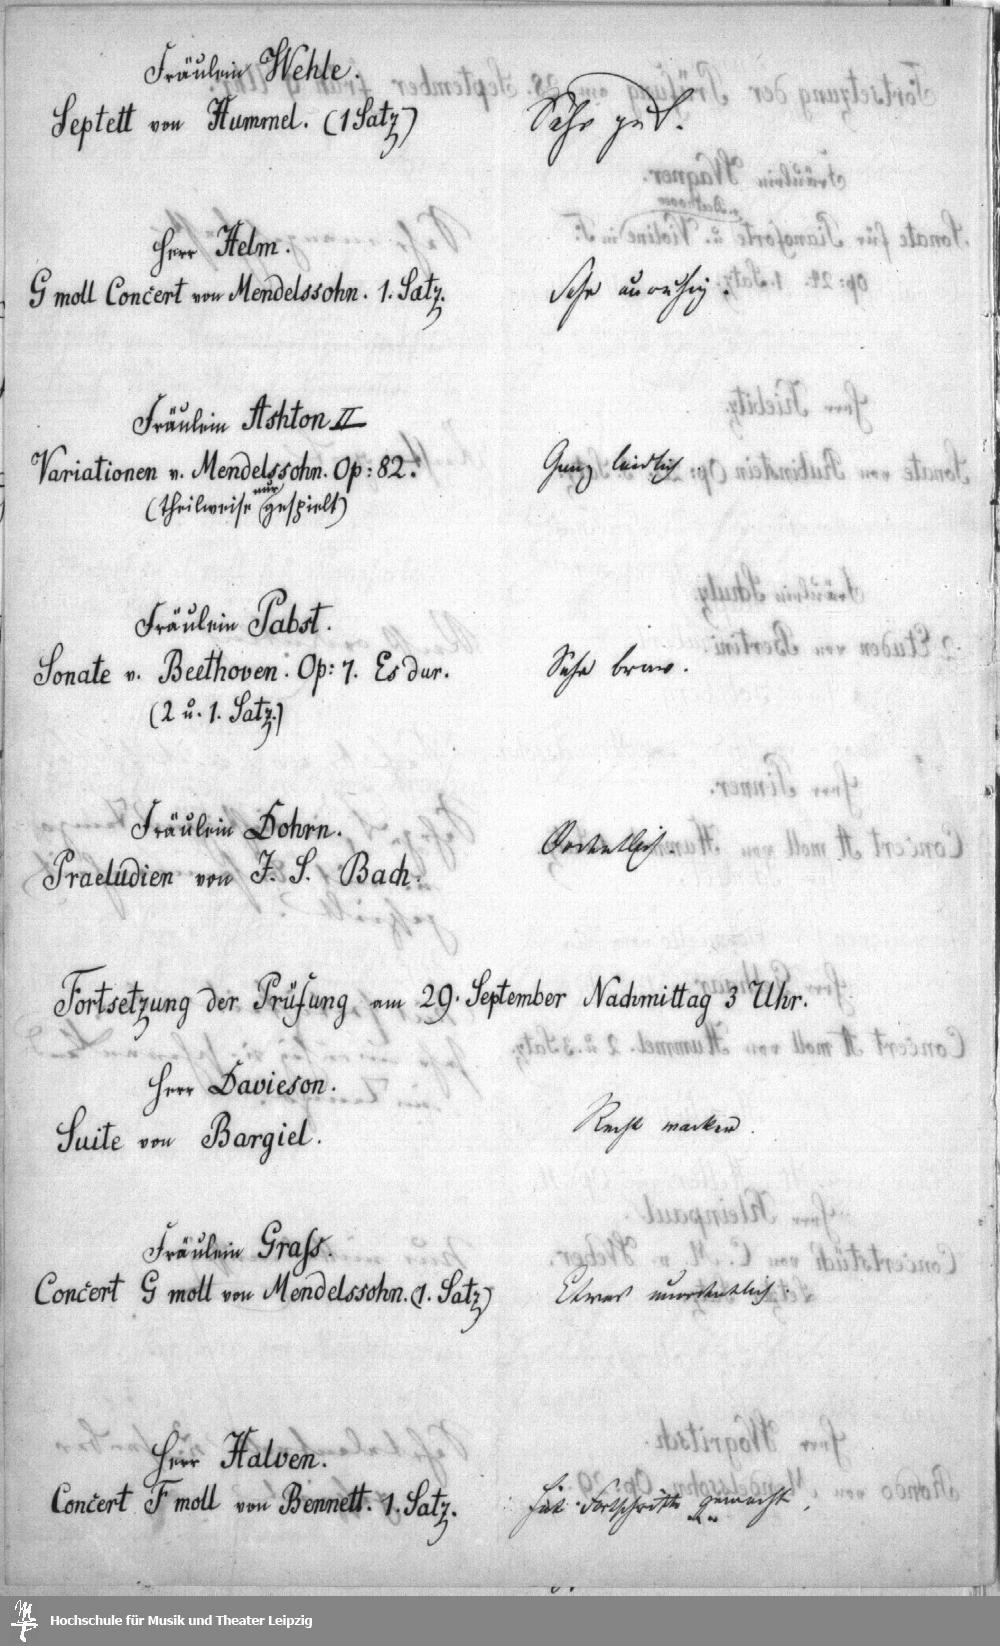 Fräulein Wehle.
Septett von Hummel. (1 Satz)
Sehr gut.
Herr Helm.
G moll Concert von Mendelssohn. 1. Satz.
Sehr unruhig.
Fräulein Ashton II
Variationen v. Mendelssohn. Op: 82.
(theilweise nur gespielt)
Ganz leidlich
Fräulein Pabst.
Sonate v. Beethoven. Op: 7. Es dur.
(2 u. 1. Satz.)
Sehr brav.
Fräulein Dohrn.
Praeludien von J. S. Bach.
Ordentlich.
Fortsetzung der Prüfung am 29. September Nachmittag 3 Uhr.
Herr Davieson.
Suite von Bargiel.
Recht wacker.
Fräulein Grass.
Concert G moll von Mendelssohn. (1. Satz)
Etwas unordentlich.
Herr Halven.
Concert F moll von Bennett. 1. Satz.
Hat Fortschritte gemacht.
Hochschule für Musik und Theater Leipzig